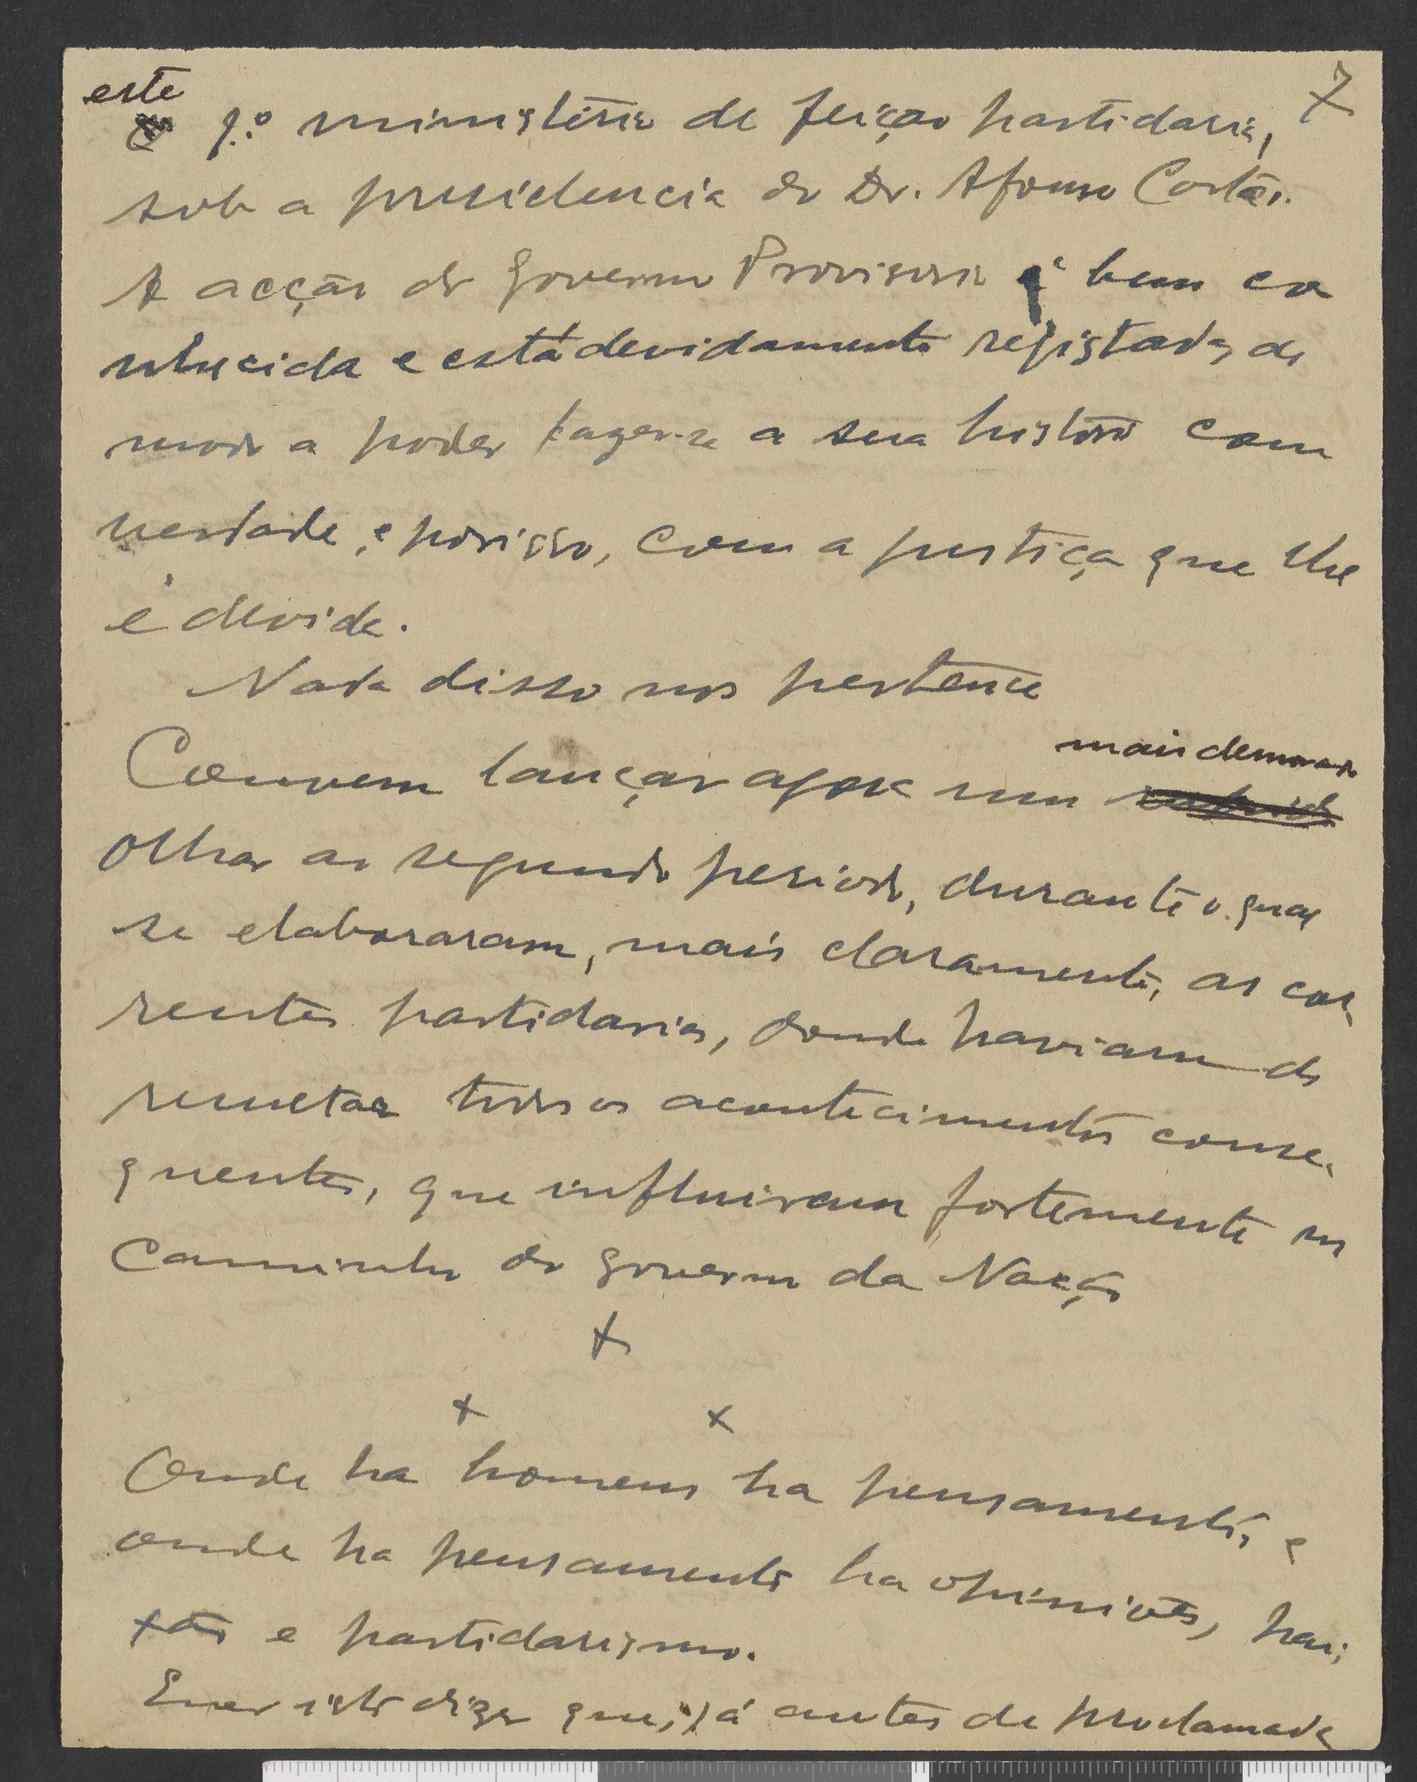 7
este
1.º ministério de feição partidaria,
sob a presidencia do Dr. Afonso Costa.
A acção do Governo Provisorio é bem co
nhecida e está devidamente registada, de
modo a poder fazer-se a sua história com
verdade, e porisso, com a justiça que lhe
é devida.
Nada disso nos pertence
Convem lançar agora um mais demorado
olhar ao segundo periodo, durante o qual
se elaboraram, mais claramente, as cor-
rentes partidarias, donde haviam de
todos os acontecimentos conse-
quentes, que influiram fortemente no
Caminho do governo da Nação
+
+ x
Onde ha homens ha pensamento, e
onde ha pensamento ha opiniões, pai-
xões e partidarismo.
Quer isto dizer que, já antes de proclamada